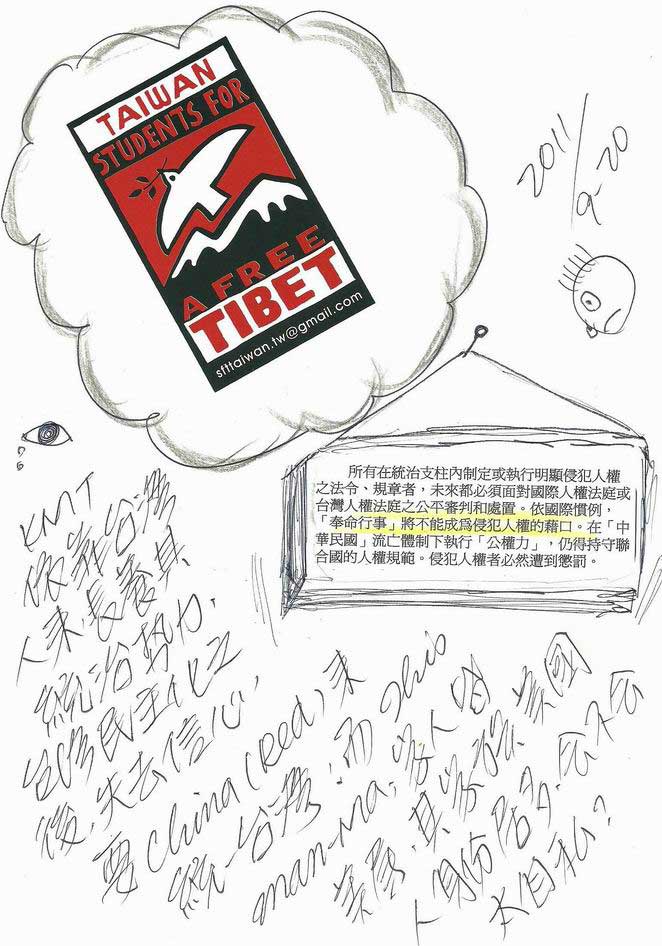 TAIWAN
STUDENTS FOR
A FREE
TIBET
sfttaiwan.tw@gmail.com
2011/
9-20
所有在統治支柱內制定或執行明顯侵犯人權
之法令、規章者，未來都必須面對國際人權法庭或
台灣人權法庭之公平審判和處置。依國際慣例，
「奉命行事」將不能成為侵犯人權的藉口。在「中
華民國」流亡體制下執行「公權力」，仍得持守聯
合國的人權規範。侵犯人權者必然遭到懲罰。
KMT
依靠台灣
人來長養其
統治勢力.
台灣民主化之
後,失去信心,
要China(Red)來
統一台灣;而
man-Ma,
美國
人身份
自私?